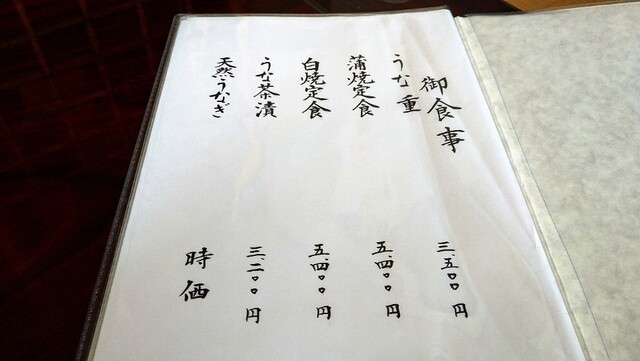 御食事
うな重 三、五〇〇円
蒲焼定食 五、四〇〇円
白焼定食 五、四〇〇円
うな茶漬 三、二〇〇円
天然うなぎ 時価